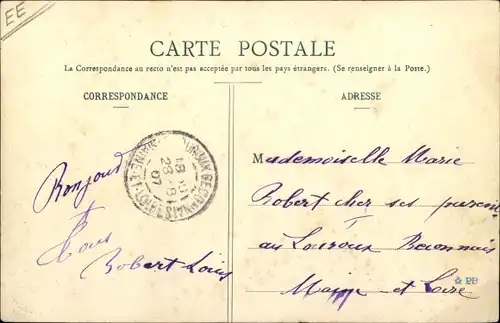 EE
CARTE POSTALE
La Correspondance au recto n'est pas acceptée par tous les pays étrangers. (Se renseigner à la Poste.)
CORRESPONDANCE
ADRESSE
Bonjour
à Tous
Robert Louis
18
28 -8
07
Mademoiselle Marie
Robert cher ses parent
au Louroux Beconnais
Maine et Loire